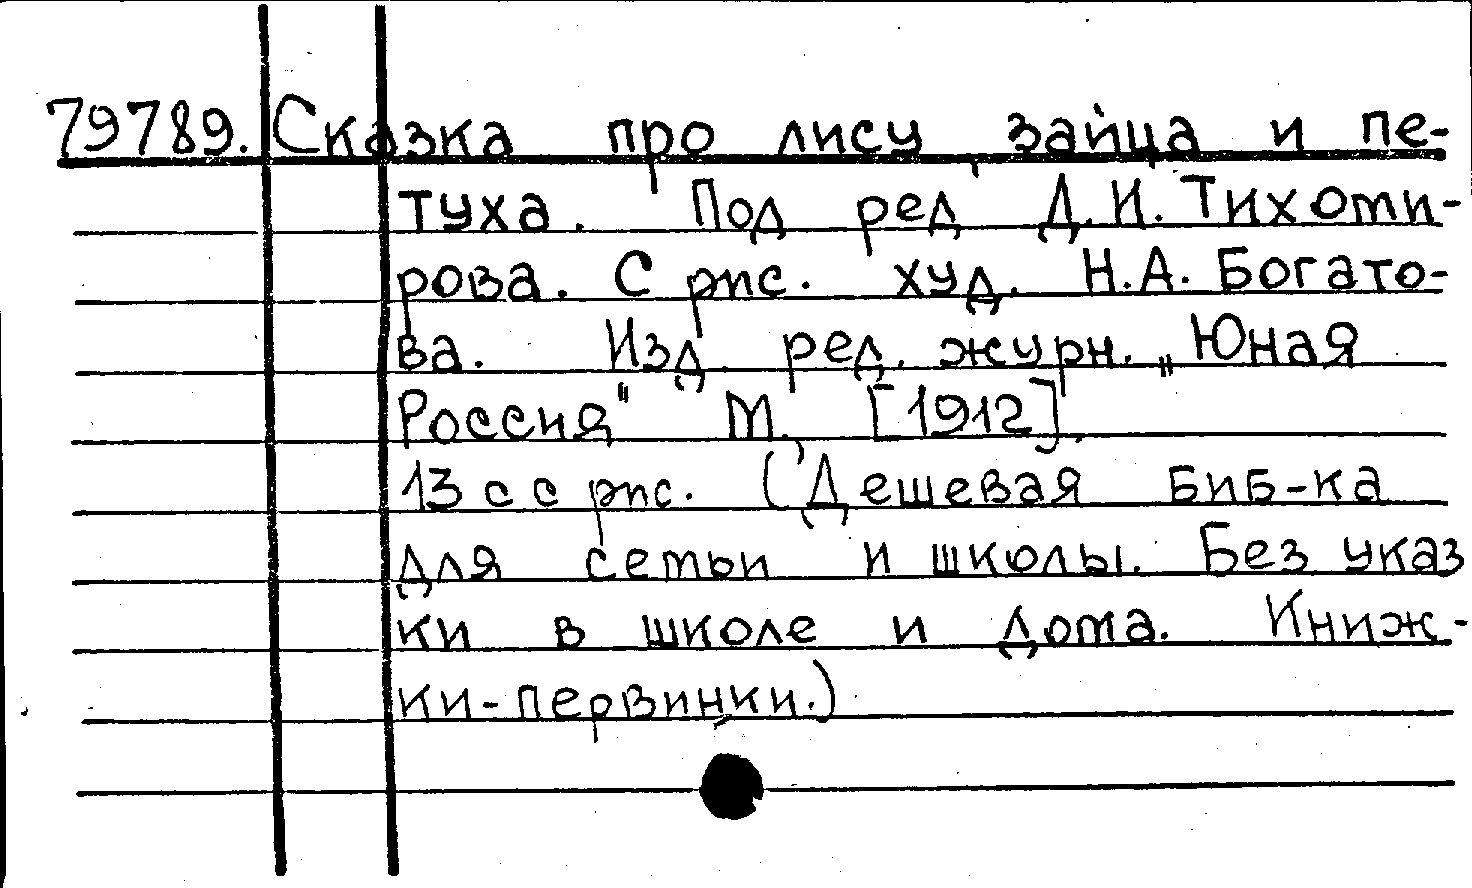 79789. Сказка про лису, зайца и пе-
туха. Под ред. Д.И. Тихоми-
рова. С рис. худ. Н.А. Богато-
ва. Изд. ред. журн. „Юная
Россия" М., [1912].
13 с с рис. (Дешевая биб-ка
для сетьи и школы. Без указ
ки в школе и дома. Книж-
ки-первинки.)